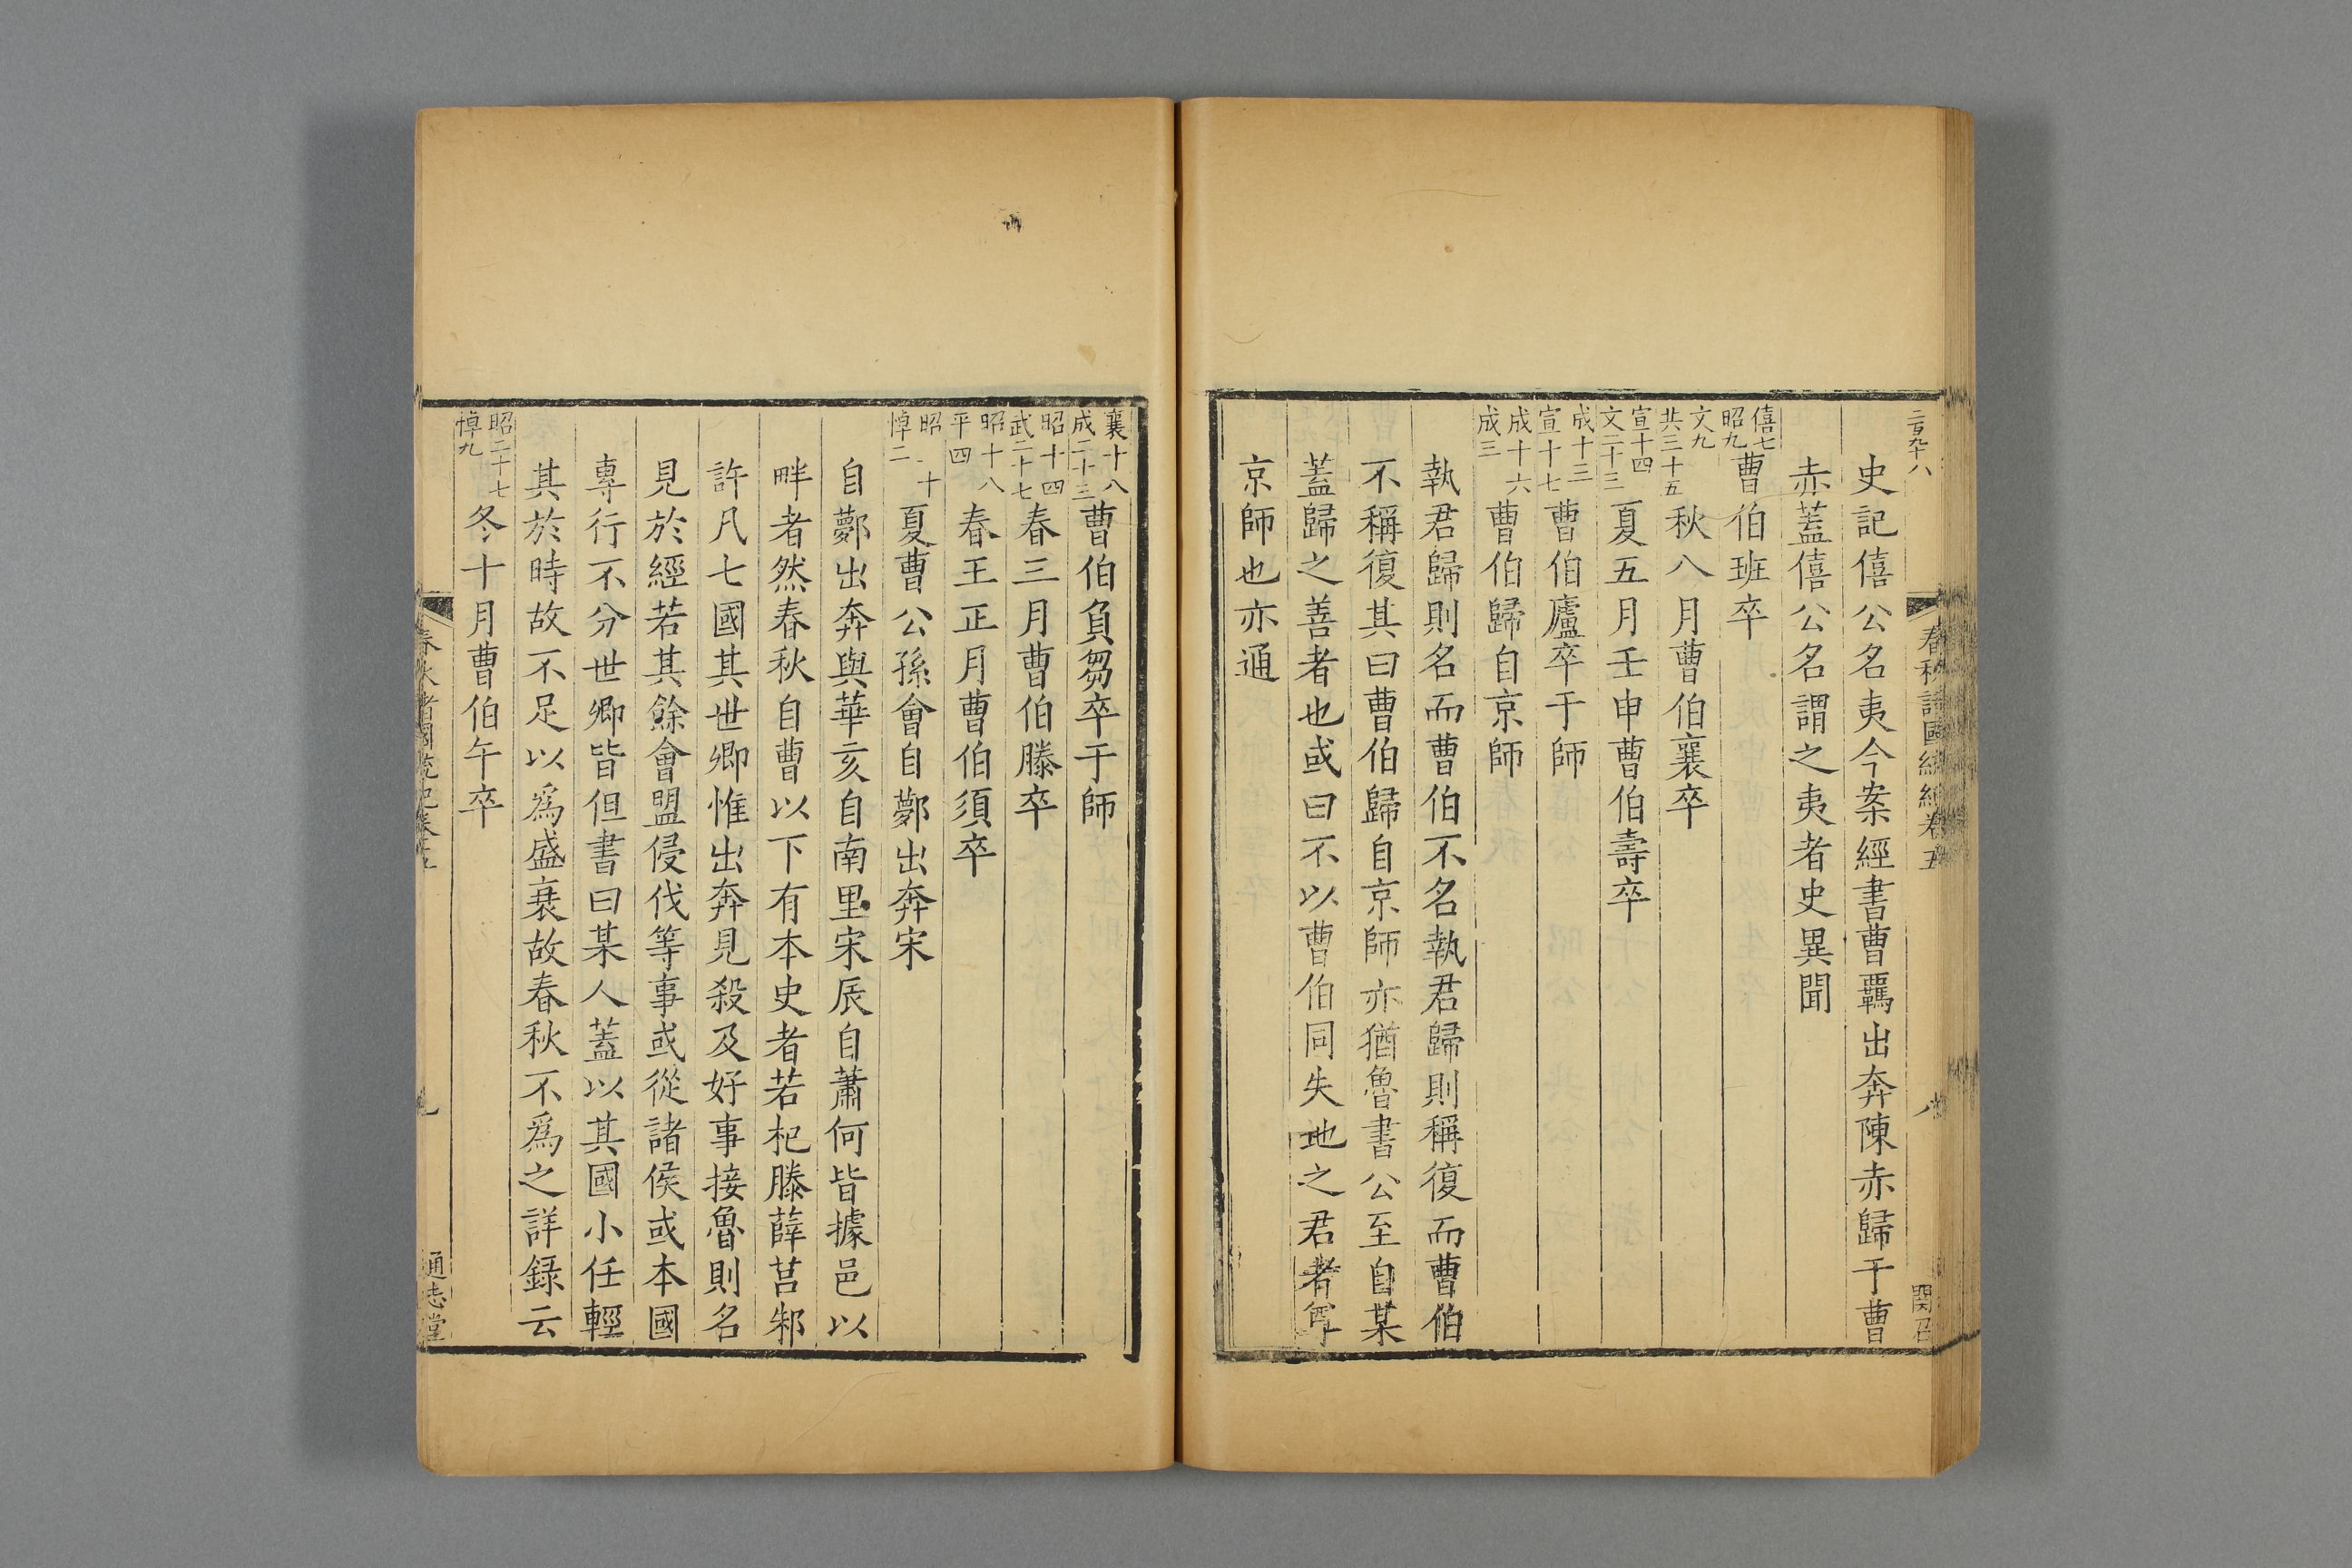 二百九十八
春秋諸國統紀卷五
八
史記僖公名夷今案經書曹羈出奔陳赤歸于曹
赤蓋僖公名謂之夷者史異聞
僖七
昭九
曹伯班卒
文九
共三十五
秋八月曹伯襄卒
宣十四
文二十三
夏五月壬申曹伯壽卒
成十三
宣十七
曹伯廬卒于師
成十六
成三
曹伯歸自京師
執君歸則名而曹伯不名執君歸則稱復而曹伯
不稱復其曰曹伯歸自京師亦猶魯書公至自某
蓋歸之善者也或曰不以曹伯同失地之君者
京師也亦通
襄十八
成二十三
曹伯負芻卒于師
昭十四
武二十七
春三月曹伯滕卒
昭十八
平四
春王正月曹伯須卒
昭二十
悼二
夏曹公孫會自鄸出奔宋
自鄸出奔與華亥自南里宋辰自蕭何皆據邑以
畔者然春秋自曹以下有本史者若杞滕薛莒邾
許凡七國其世卿惟出奔見殺及好事接魯則名
見於經若其餘會盟侵伐等事或從諸侯或本國
專行不分世卿皆但書曰某人蓋以其國小任輕
其於時故不足以為盛衰故春秋不為之詳錄云
昭二十七
悼九
冬十月曹伯午卒
春秋諸國統紀卷五
九
通志堂